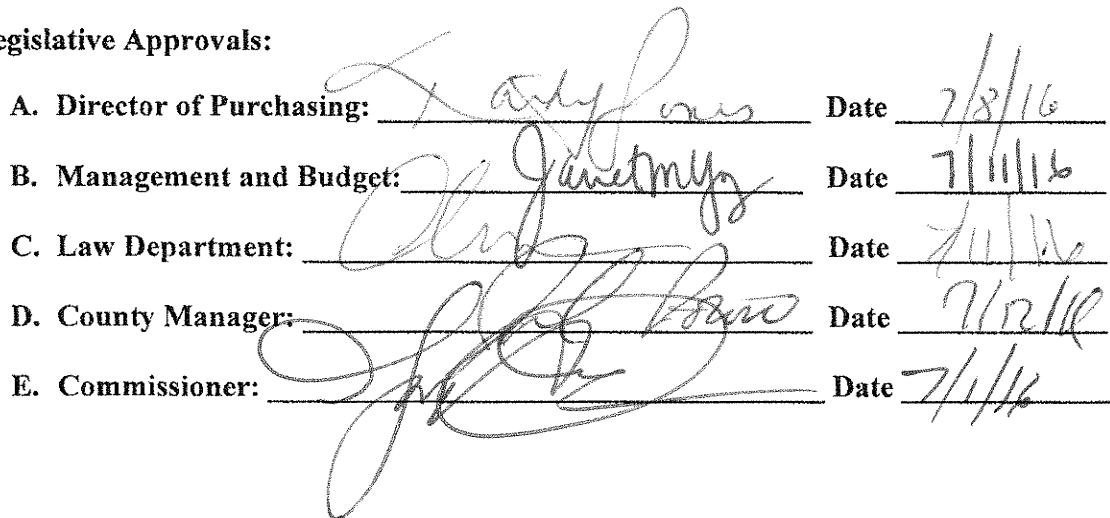 egislative Approvals:
A. Director of Purchasing: Date 7/8/16
B. Management and Budget: Janet Date 7/11/16
C. Law Department: Date 7/11/16
D. County Manager: Date 7/12/16
E. Commissioner: Date 7/1/16